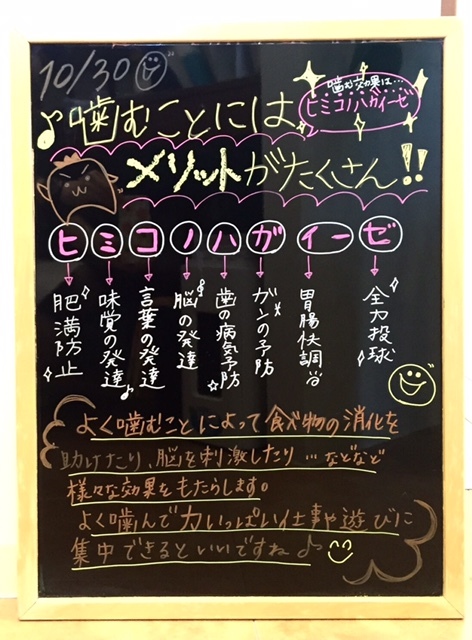 10/30
噛む効果は…
ヒミコノハガイーゼ
♪噛むことには
メリットがたくさん!!
ヒミコノハガイーゼ
肥満防止
味覚の発達♪
言葉の発達
脳の発達
歯の病気予防
ガンの予防
胃腸快調
全力投球
よく噛むことによって食べ物の消化を
助けたり、脳を刺激したり…などなど
様々な効果をもたらします。
よく噛んで力いっぱい仕事や遊びに
集中できるといいですね♪